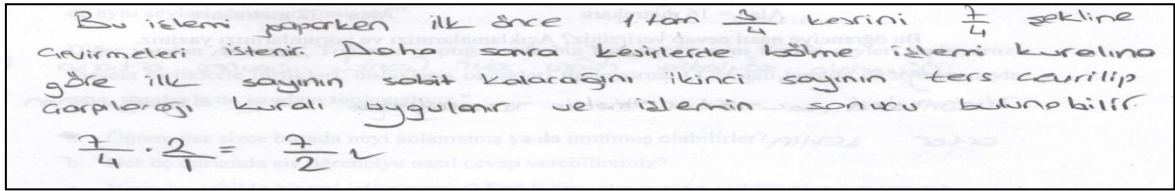 Bu işlemi yaparken ilk önce 1 tam 3/4 kesrini 7/4 şekline
çevirmeleri istenir. Daha sonra kesirlerde bölme işlemi kuralına
göre ilk sayının aynı kalacağını ikinci sayının ters çevrilip
çarpılacağı kuralı uygulanır ve işlemin sonucu bulunabilir.
7/4 · 2/1 = 7/2